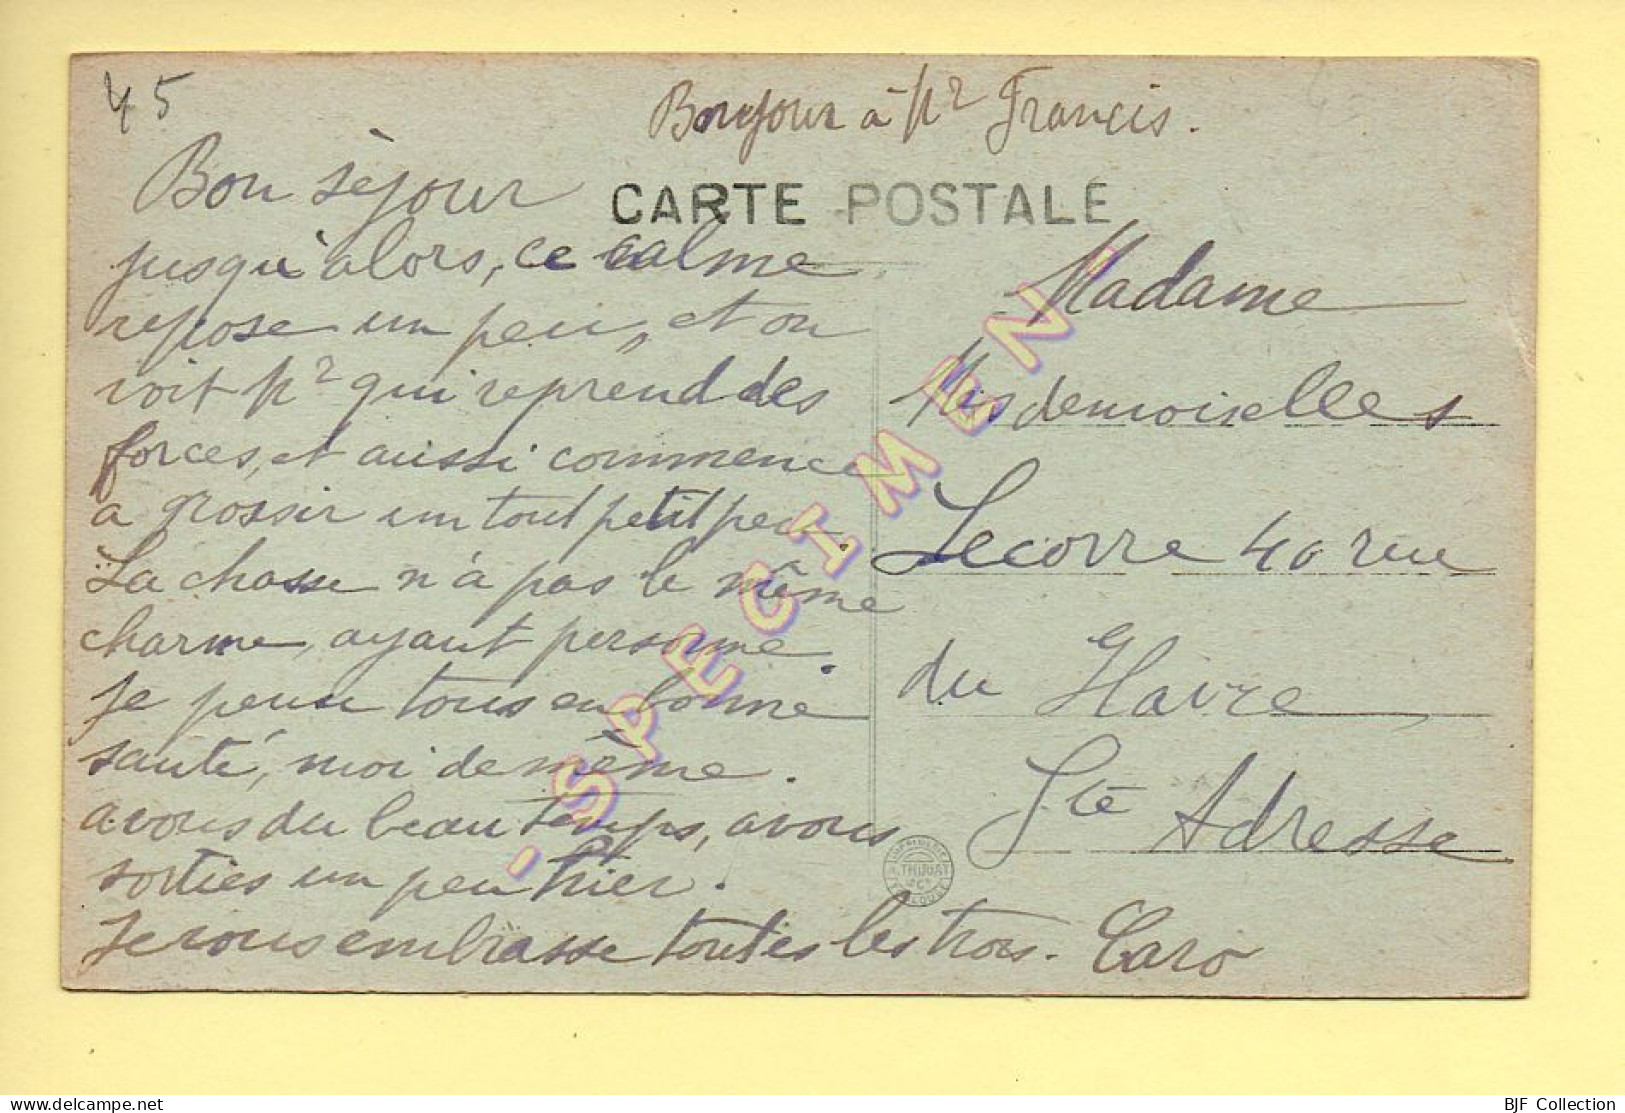 45
Bonjour à Pr Francis.
CARTE POSTALE
Bon séjour
jusqu'alors, ce calme
repose un peu, et on
voit Pr qui reprend des
forces, et aussi commence
a grossir un tout petit peu.
La chasse n'a pas le même
charme, ayant personne.
Je pense tous en bonne
santé, moi de même.
avons du beau temps, avons
sorties un peu hier.
Je vous embrasse toutes les trois. Caro
Madame
Mesdemoiselles
Lecorre 40 rue
du Havre
Ste Adresse
-SPECIMEN-
IMPRIMERIE
THIRIAT
TOULOUSE
BJF Collection